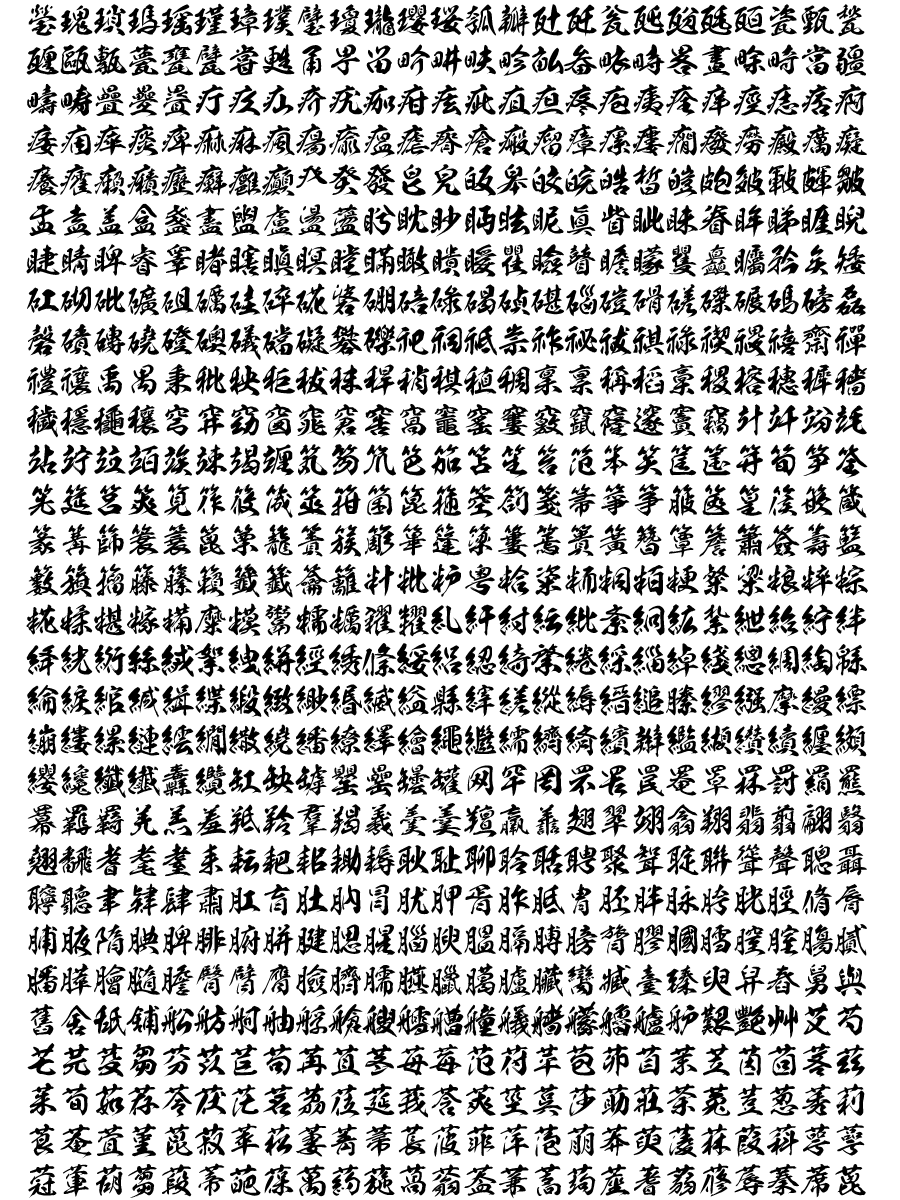 瑩瑰瑣瑪瑶瑾璋璞璧瓊瓏瓔珱瓠瓣瓧瓩瓮瓲瓰瓱瓸瓷甄甃
甅甌甎甍甕甓甞甦甬甼畄畍畊畉畛畆畚畩畤畧畫畭畸當疆
疇畴疊疉疂疔疚疝疥疣痂疳痃疵疽疸疼疱痍痊痒痙痣痞痾
痿痼瘁痰痺痲痳瘋瘍瘉瘟瘧瘠瘡瘢瘤瘴瘰瘻癇癈癆癜癘癡
癢癨癩癪癧癬癰癲癶癸發皀皃皈皋皎皖皓皙皚皰皴皸皹皺
盂盍盖盒盞盡盥盧盪蘯盻眈眇眄眩眤眞眥眦眛眷眸睇睚睨
睫睛睥睿睾睹瞎瞋瞑瞠瞞瞰瞶瞹瞿瞼瞽瞻矇矍矗矚矜矣矮
矼砌砒礦砠礪硅碎硴碆硼碚碌碣碵碪碯磑磆磋磔碾碼磅磊
磬磧磚磽磴礇礒礑礙礬礫祀祠祗祟祚祕祓祺祿禊禝禧齋禪
禮禳禹禺秉秕秧秬秡秣稈稍稘稙稠稟禀稱稻稾稷穃穗穉穡
穢穩龝穰穹穽窈窗窕窘窖窩竈窰窶竅竄窿邃竇竊竍竏竕竓
站竚竝竡竢竦竭竰笂笏笊笆笳笘笙笞笵笨笶筐筺笄筍笋筌
筅筵筥筴筧筰筱筬筮箝箘箟箍箜箚箋箒箏筝箙篋篁篌篏箴
篆篝篩簑簔篦篥籠簀簇簓篳篷簗簍篶簣簧簪簟簷簫簽籌籃
籔籏籀籐籘籟籤籖籥籬籵粃粐粤粭粢粫粡粨粳粲粱粮粹粽
糀糅糂糘糒糜糢鬻糯糲糴糶糺紆紂紜紕紊絅絋紮紲紿紵絆
絳絖絎絲絨絮絏絣經綉絛綏絽綛綺綮綣綵緇綽綫總綢綯緜
綸綟綰緘緝緤緞緻緲緡縅縊縣縡縒縱縟縉縋縢繆繦縻縵縹
繃縷縲縺繧繝繖繞繙繚繹繪繩繼繻纃緕繽辮繿纈纉續纒纐
纓纔纖纎纛纜缸缺罅罌罍罎罐网罕罔罘罟罠罨罩罧罸羂羆
羃羈羇羌羔羞羝羚羣羯羲羹羮羶羸譱翅翆翊翕翔翡翦翩翳
翹飜耆耄耋耒耘耙耜耡耨耿耻聊聆聒聘聚聟聢聨聳聲聰聶
聹聽聿肄肆肅肛肓肚肭冐肬胛胥胙胝胄胚胖脉胯胱脛脩脣
脯腋隋腆脾腓腑胼腱腮腥腦腴膃膈膊膀膂膠膕膤膣腟膓膩
膰膵膾膸膽臀臂膺臉臍臑臙臘臈臚臟臠臧臺臻臾舁舂舅與
舊舍舐舖舩舫舸舳艀艙艘艝艚艟艤艢艨艪艫舮艱艷艸艾芍
芒芫芟芻芬苡苣苟苒苴苳苺莓范苻苹苞茆苜茉苙茵茴茖茲
茱荀茹荐荅茯茫茗茘莅莚莪莟莢莖茣莎莇莊荼莵荳荵莠莉
莨菴萓菫菎菽萃菘萋菁菷萇菠菲萍萢萠莽萸蔆菻葭萪萼蕚
蒄葷葫蒭葮蒂葩葆萬葯葹萵蓊葢蒹蒿蒟蓙蓍蒻蓚蓐蓁蓆蓖